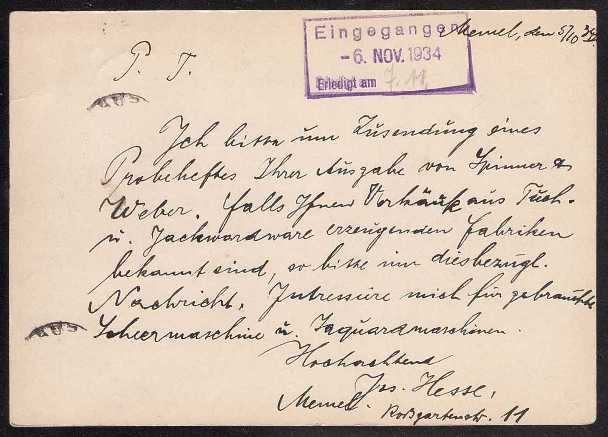 Eingegangen
-6. NOV. 1934
Erledigt am 7.11.
Memel, den 5/10 34.
P. T.
AUS
Ich bitte um Zusendung eines
Probeheftes Ihrer Ausgabe von Spinner &
Weber. Falls Ihnen Verkäufe aus Tuch-
u. Jackwardware erzeugenden Fabriken
bekannt sind, so bitte um diesbezügl.
Nachricht. Intressiere mich für gebrauchte
Scheermaschine u. Jaquardmaschinen.
AUS
Hochachtend
Jos. Hesse,
Memel. Roßgartenstr. 11